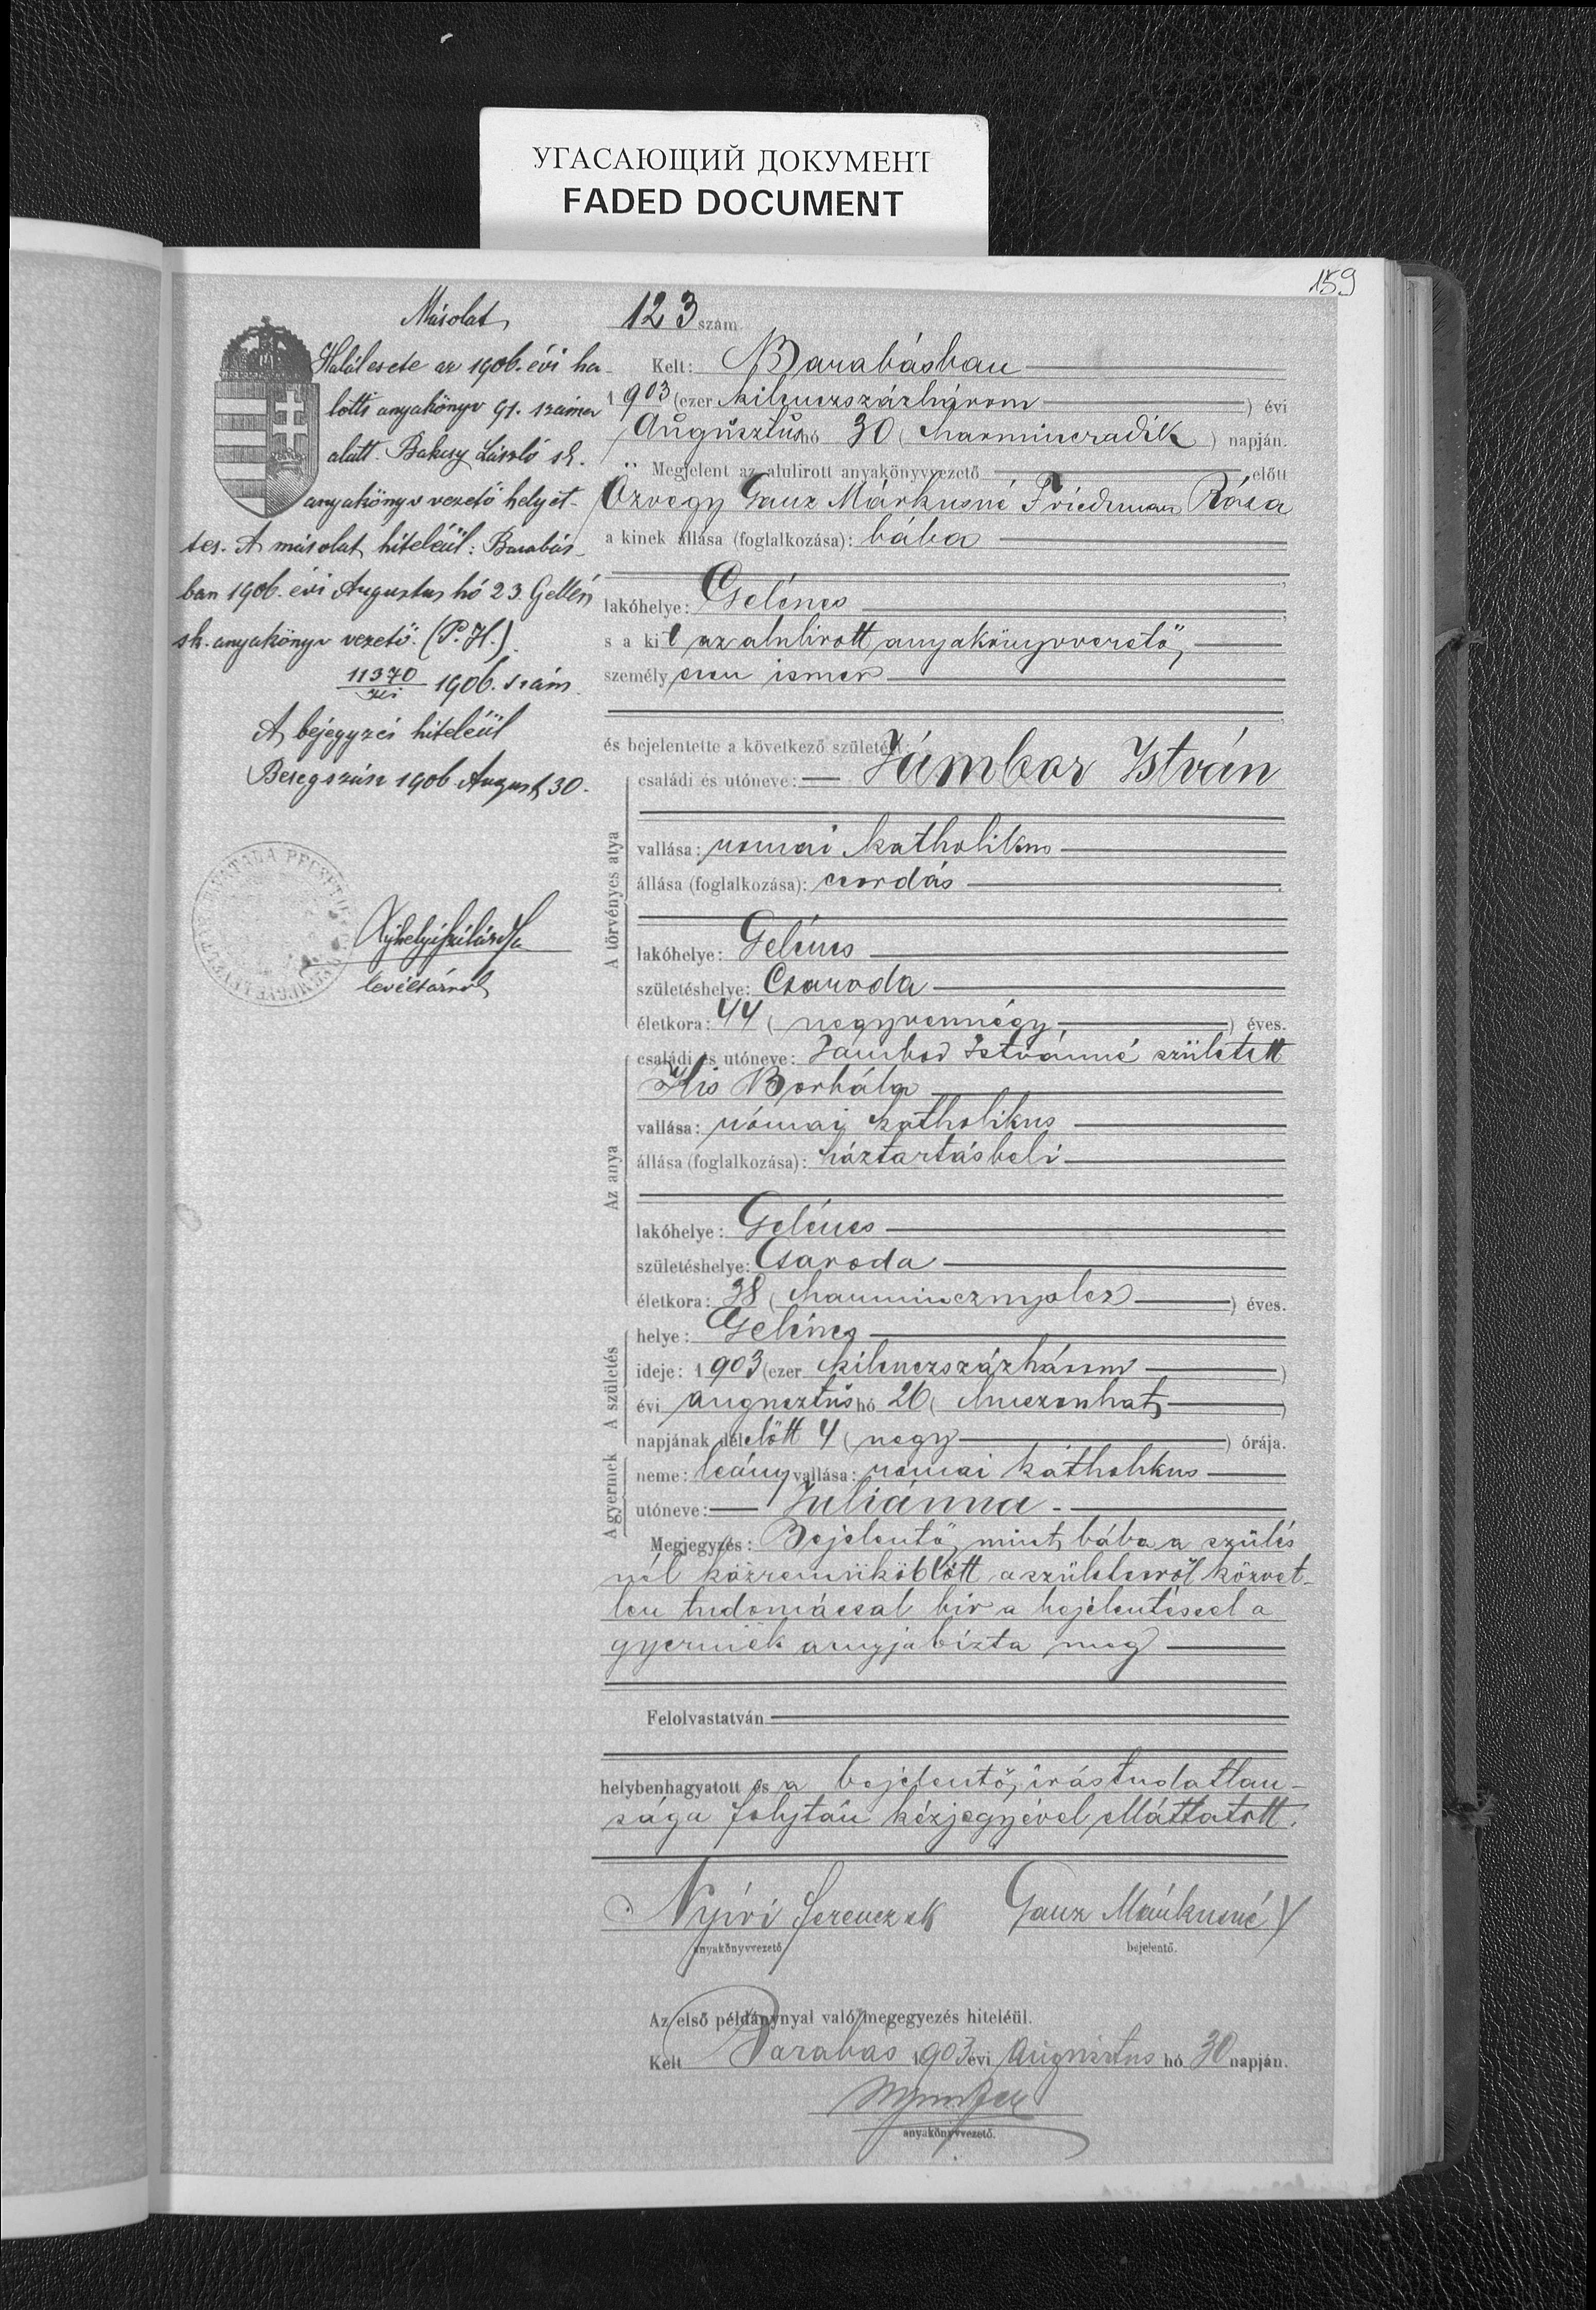 УГАСАЮЩИЙ ДОКУМЕНТ
FADED DOCUMENT
159
Másolat
Halálesete az 1906. évi ha-
lotti anyakönyv 91. száma
alatt. Bakcsy László sk.
anyakönyvvezető helyet-
tes. A másolat hiteléül: Barabás-
ban 1906. évi Augustus hó 23. Gellén
sk. anyakönyv vezető. (P. H.)
11370 1906. szám.
A bejegyzés hiteléül
Beregszász 1906 August 30.
levéltárnok
123 szám.
Kelt: Barabásban
1903 (ezer kilenczszázhárom) évi
Augusztus hó 30 (harminczadik) napján.
Megjelent az alulirott anyakönyvvezető előtt
Özvegy Ganz Márkusné Friedman Róza
a kinek állása (foglalkozása): bába
lakóhelye: Gelénes
s a kit az alulirott anyakönyvvezető,
személyesen ismer
és bejelentette a következő születést:
A törvényes atya
családi és utóneve: Jámbor István
vallása: romai katholikus
állása (foglalkozása): csordás
lakóhelye: Gelénes
születéshelye: Csaroda
életkora: 44 (negyvennégy) éves.
Az anya
családi és utóneve: Jámbor Istvánné született
Kis Borbála
vallása: római katholikus
állása (foglalkozása): háztartásbeli
lakóhelye: Gelénes
születéshelye: Csaroda
életkora: 38 (harmincznyolcz) éves.
A születés
helye: Gelénes
ideje: 1903 (ezer kilenczszázhárom)
évi augusztus hó 26 (huszonhat)
napjának délelőtt 4 (negy) órája.
A gyermek
neme: leány vallása: romai katholikus
utóneve: Juliánna
Megjegyzés: Bejelentő, mint bába a szülés
nél közremüködött a születésről közvet-
len tudomással bir a bejelentéssel a
gyermek anyja bizta meg
Felolvastatván
helybenhagyatott és a bejelentő, irástudatlan-
sága folytán kézjegyével elláttatott.
Nyíri Ferencz sk Ganz Márkusné X
anyakönyvvezető bejelentő.
Az első példánynyal való megegyezés hiteléül.
Kelt Barabas 1903 évi Augusztus hó 30 napján.
anyakönyvvezető.